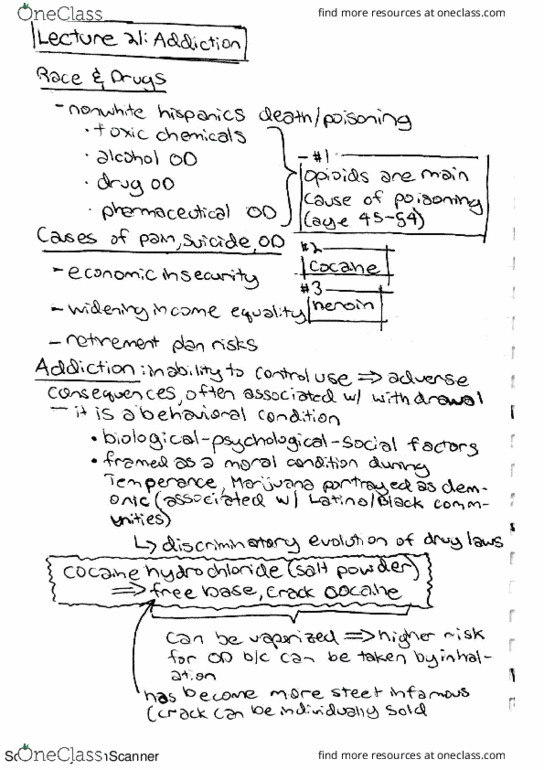 OneClass
find more resources at oneclass.com
Lecture 21: Addiction
Race & Drugs
- nonwhite hispanics death/poisoning
• toxic chemicals
• alcohol OD
• drug OD
• pharmaceutical OD
- #1
opioids are main
cause of poisoning
(age 45-54)
Cases of pain, suicide, OD
#2
cocaine
- economic insecurity
#3
heroin
- widening income equality
- retirement plan risks
Addiction: inability to control use => adverse
consequences, often associated w/ withdrawal
- it is a behavioral condition
• biological-psychological-social factors
• framed as a moral condition during
Temperance, Marijuana portrayed as dem-
onic (associated w/ Latino/Black comm-
unities)
↳ discriminatory evolution of drug laws
cocaine hydrochloride (salt powder)
=> free base, crack cocaine
can be vaporized => higher risk
for OD b/c can be taken by inhal-
ation
has become more steet infamous
(crack can be individually sold
OneClass
Scanner
find more resources at oneclass.com